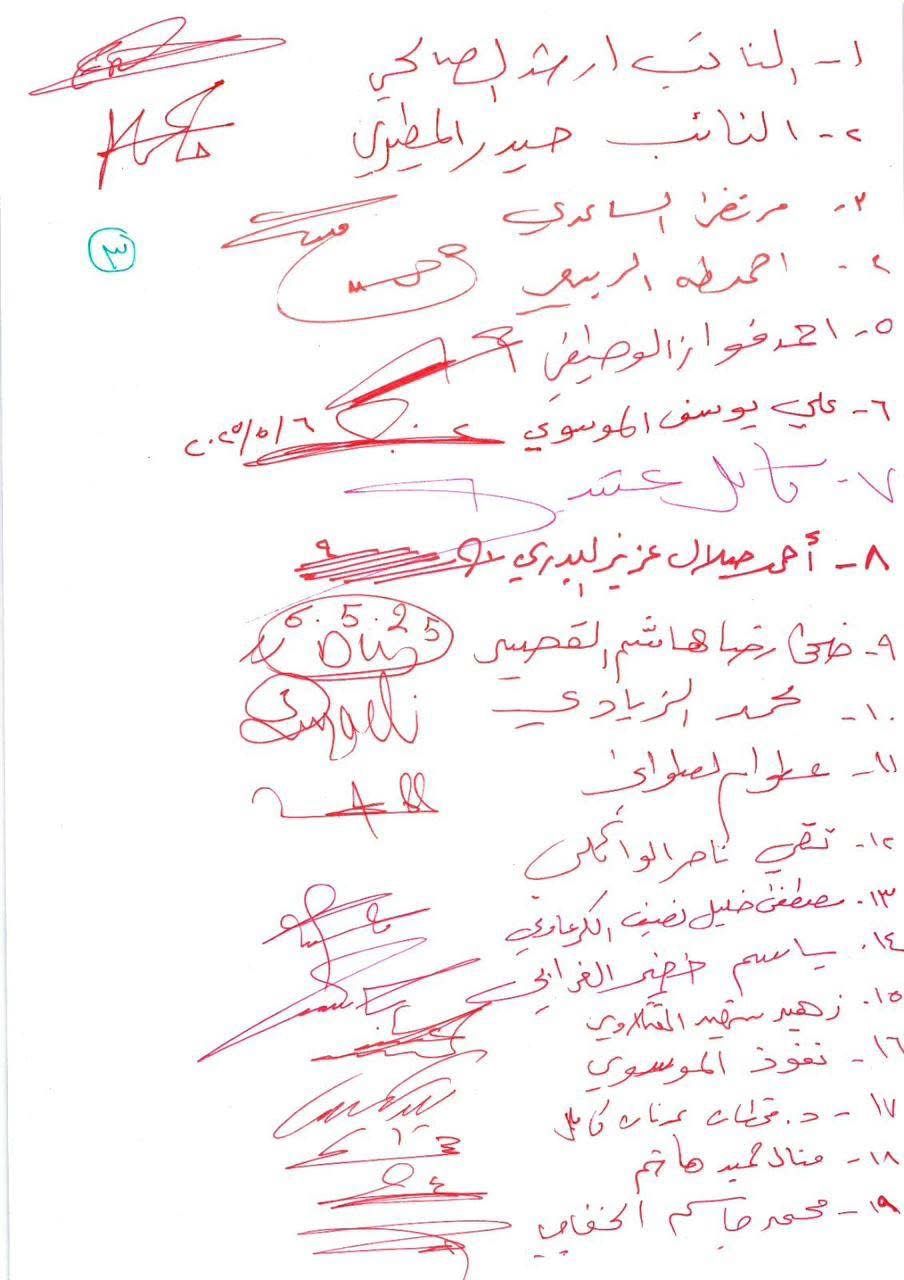 ١- النائب ارشد الصالحي
٢- النائب حيدر المطيري
٣- مرتضى الساعدي
٣
٤- احمد طه الربيعي
٥- احمد فواز الوطيفي
٦- علي يوسف الموسوي ٢٠٢٥/٥/٦
٧-
٨- أحمد صلال عزيز البدري
٩- ضحى رضا هاشم القصير 6.5.25
١٠- محمد الزيادي
١١-
١٢- تقي ناصر الوائلي
١٣- مصطفى خليل نصيف الكرعاوي
١٤- ياسم خضير الغرابي
١٥- زهير شهيد الفتلاوي
١٦- نفوذ الموسوي
١٧- د. قحطان عدنان كامل
١٨- منال حميد هاشم
١٩- محمد جاسم الخفاجي